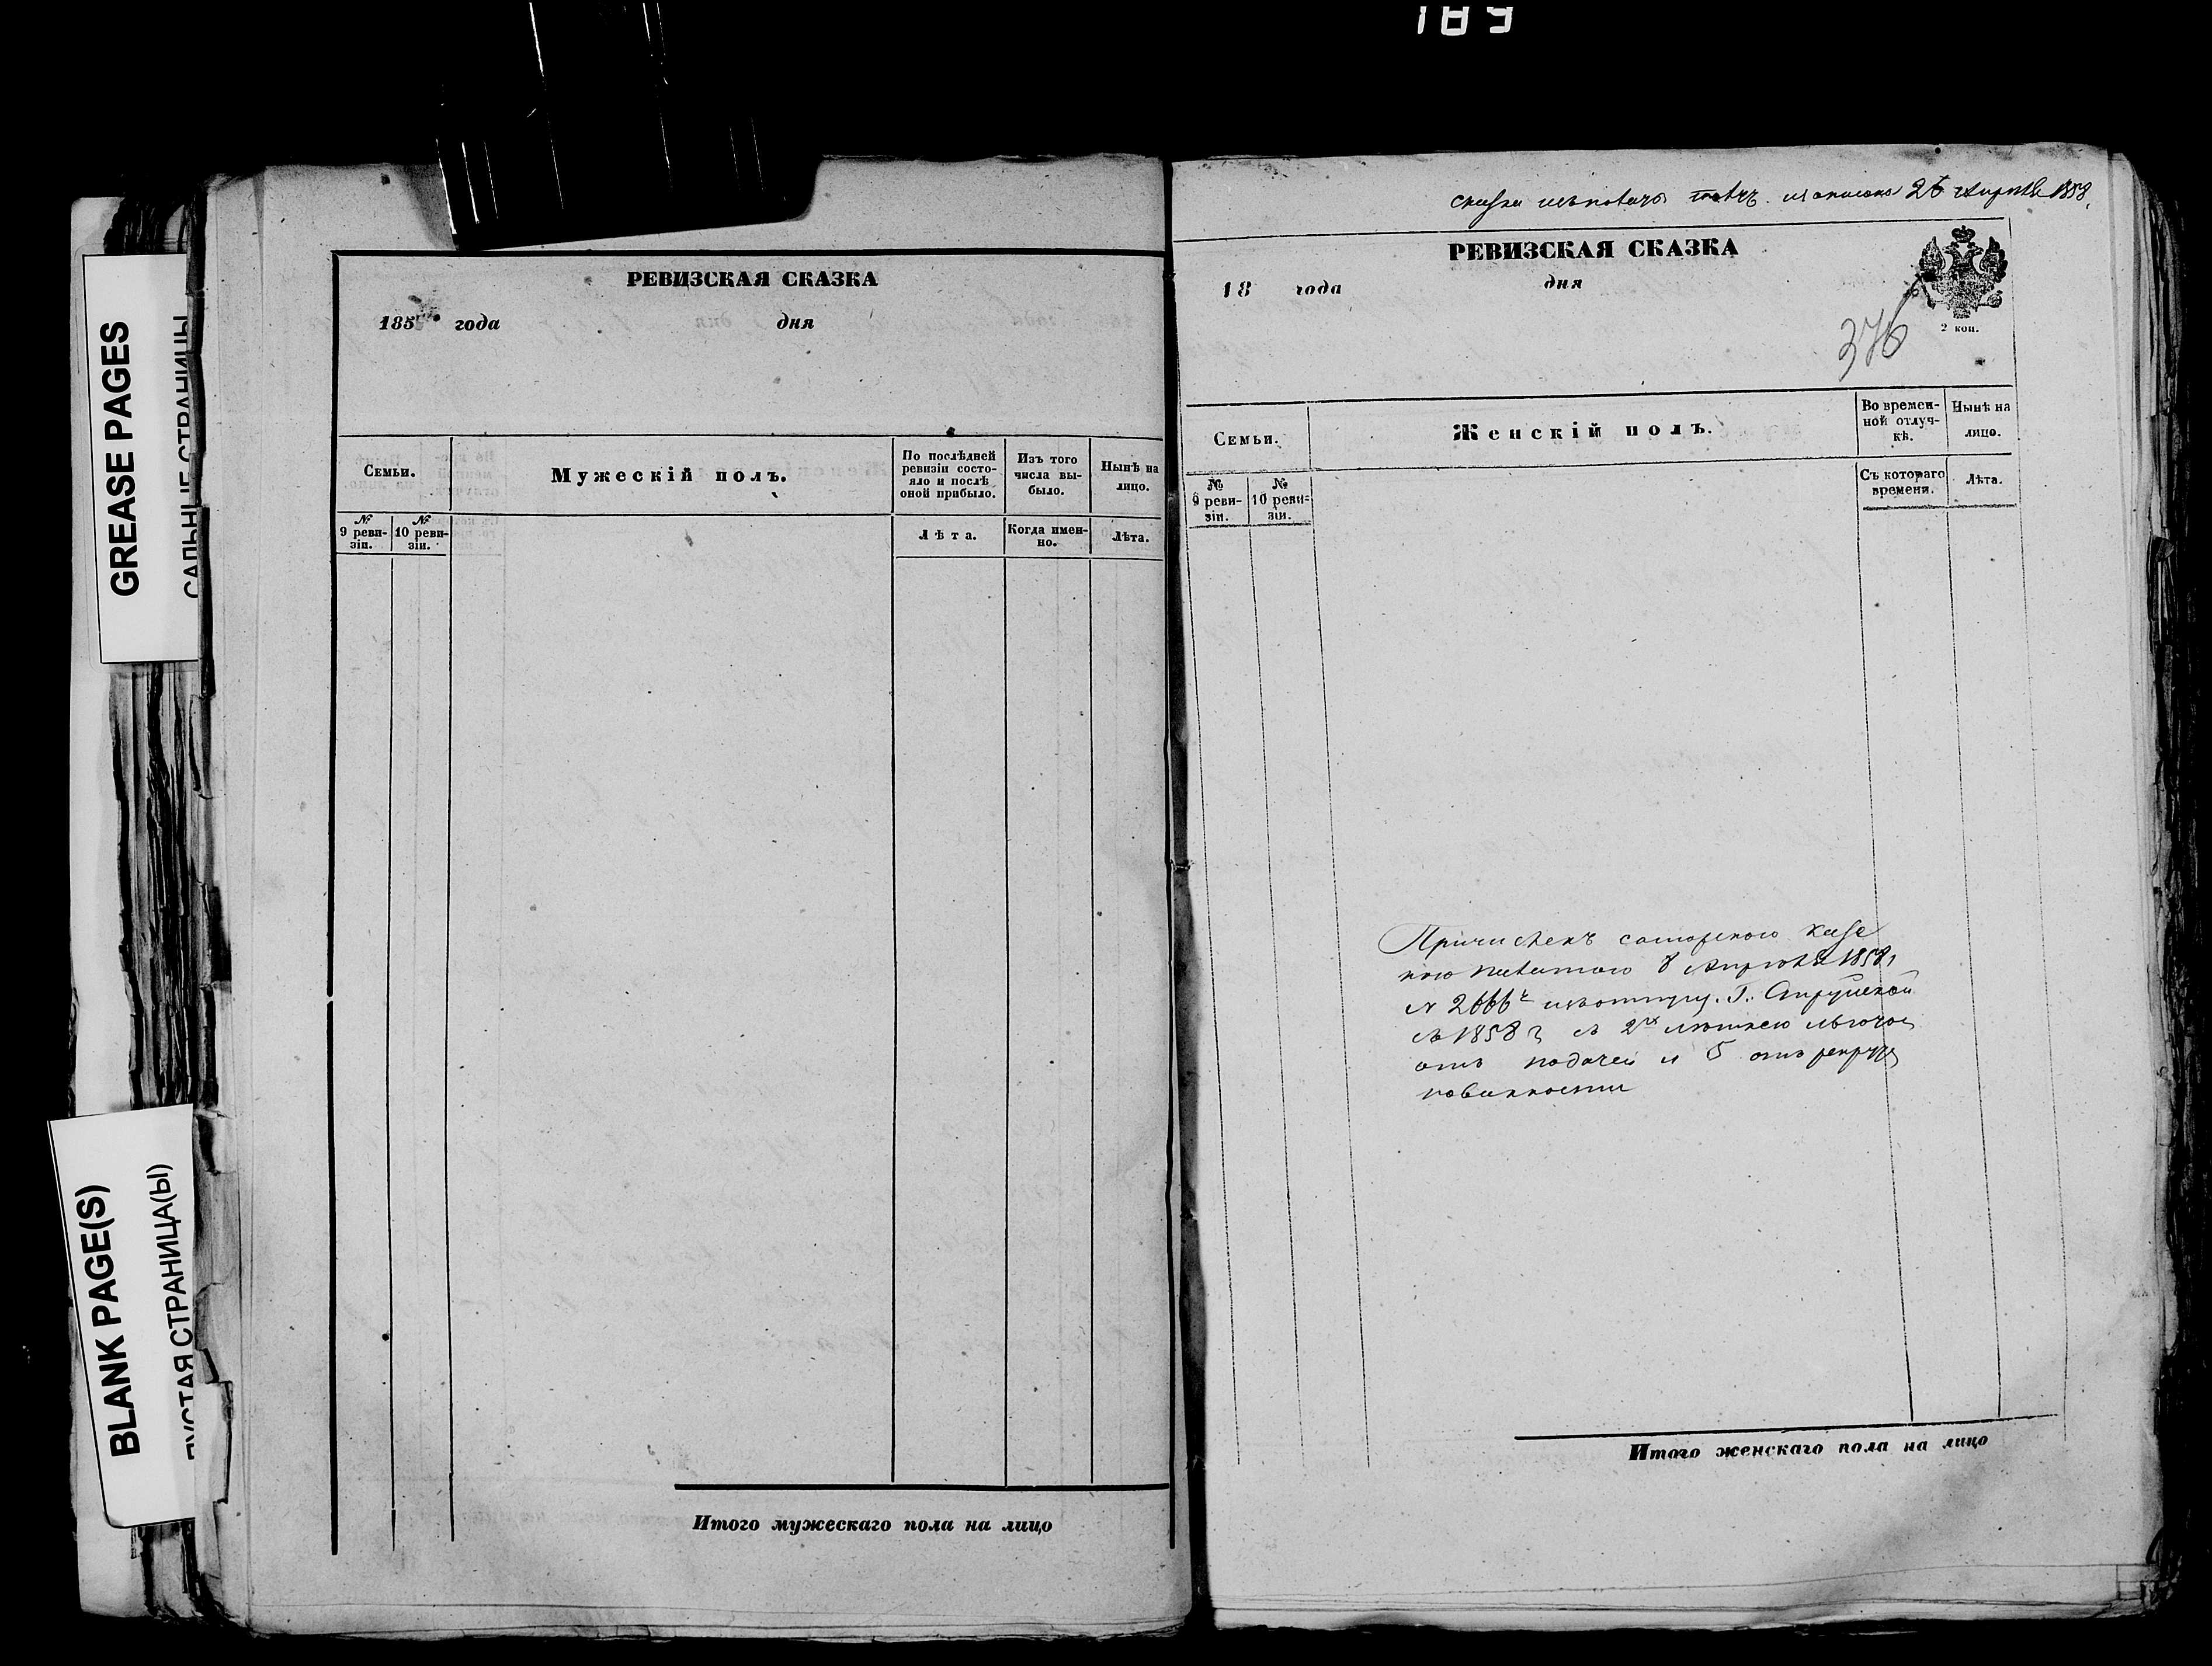 189
GREASE PAGES
САЛЬНЫЕ СТРАНИЦЫ
BLANK PAGE(S)
ПУСТАЯ СТРАНИЦА(Ы)
РЕВИЗСКАЯ СКАЗКА
185 года дня
Семьи.
Мужескій полъ.
По послѣдней
ревизіи состо-
яло и послѣ
оной прибыло.
Изъ того
числа вы-
было.
Нынѣ на
лицо.
№
9 реви-
зіи.
№
10 реви-
зіи.
Лѣта.
Когда имен-
но.
Лѣта.
Итого мужескаго пола на лицо
сказка 26 Апрѣля 1858
РЕВИЗСКАЯ СКАЗКА
18 года дня
2 коп.
376
Семьи.
Женскій полъ.
Во времен-
ной отлуч-
кѣ.
Нынѣ на
лицо.
№
9 реви-
зіи.
№
10 реви-
зіи.
Съ котораго
времени.
Лѣта.
Причисленъ самарскою казе
ною палатою 8 Апрѣля 1858
№ 2666
съ 1858 г съ 2х лѣтнею льготою
отъ податей и 5 отъ рекрут
повинности
Итого женскаго пола на лицо